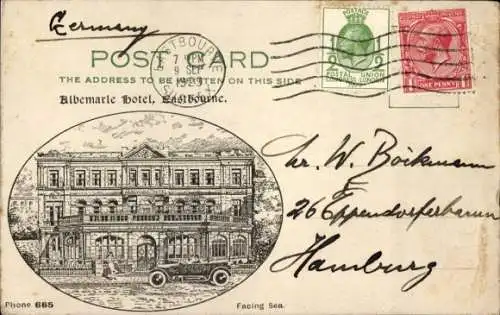 Germany
POST CARD
THE ADDRESS TO BE WRITTEN ON THIS SIDE
Albemarle Hotel, Eastbourne.
EASTBOURNE
9 SEP
1929
SUSSEX
POSTAGE
POSTAL UNION
ONE PENNY
Hr. W. Böckmann
26 Eppendorferbaum
Hamburg
Phone 665
Facing Sea.